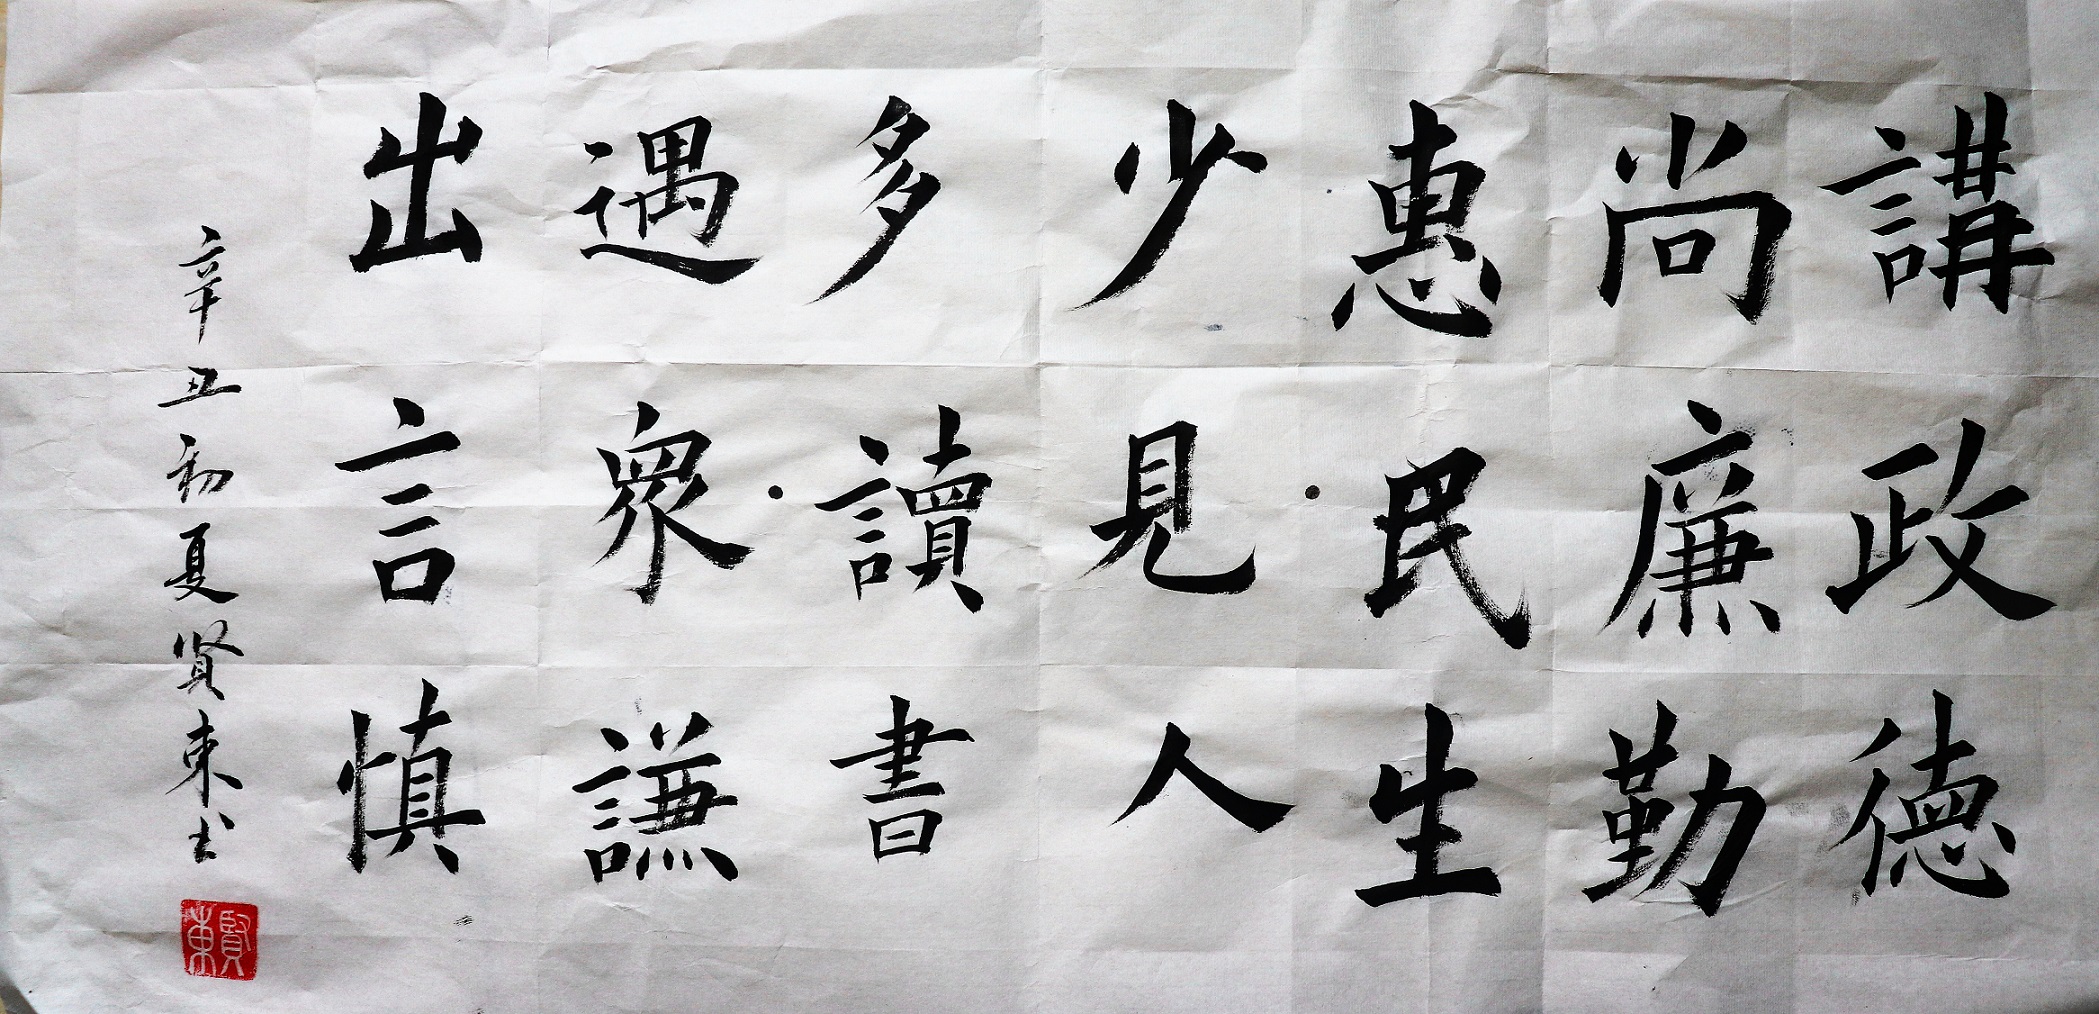 講政德
尚廉勤
惠民生
少見人
多讀書
遇衆謙
出言慎
辛丑初夏贤東书
賢東